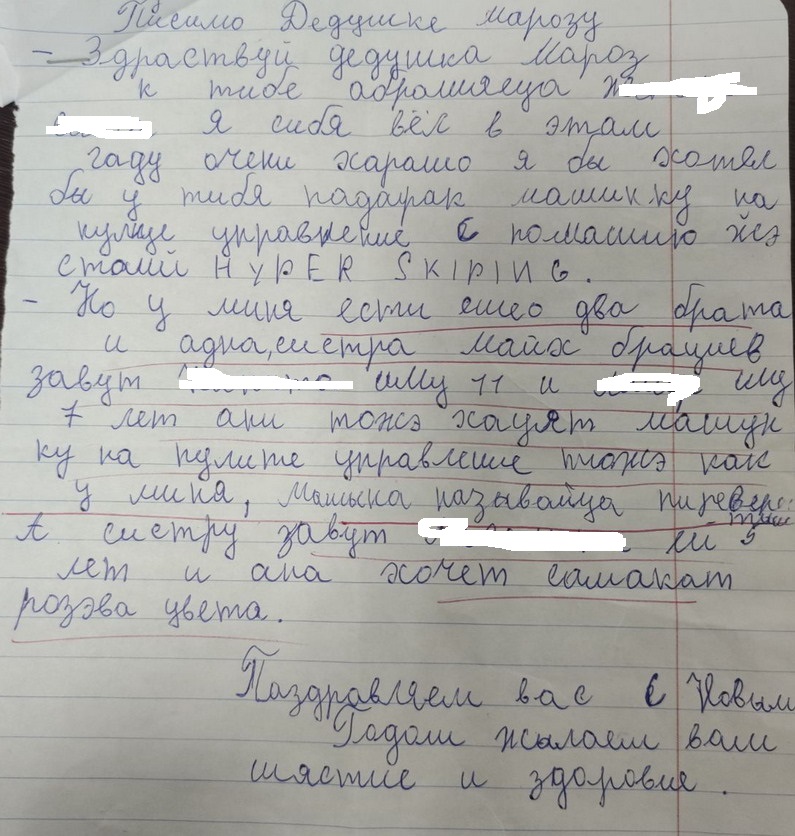 Письмо Дедушке марозу
- Здраствуй дедушка Мароз
к тибе абращяеца
Я сибя вёл в этам
гаду очени харашо я бы хотял
бы у тибя падарак машинку на
пулце управление с помащию жэ
сталй HYPER SKIPING.
- Но у миня ести ешео два брата
и адна, систра майх брациев
завут иму 11 и иму
7 лет ани тожэ хацят машун
ку на пулите управление тожэ как
у миня, Машына называйца пиревёр
тыш
А систру завут ей 5
лет и ана хочет самакат
розэва цвета.
Паздравляем вас с Новым
Годом жылаем вам
шястие и здоровие.